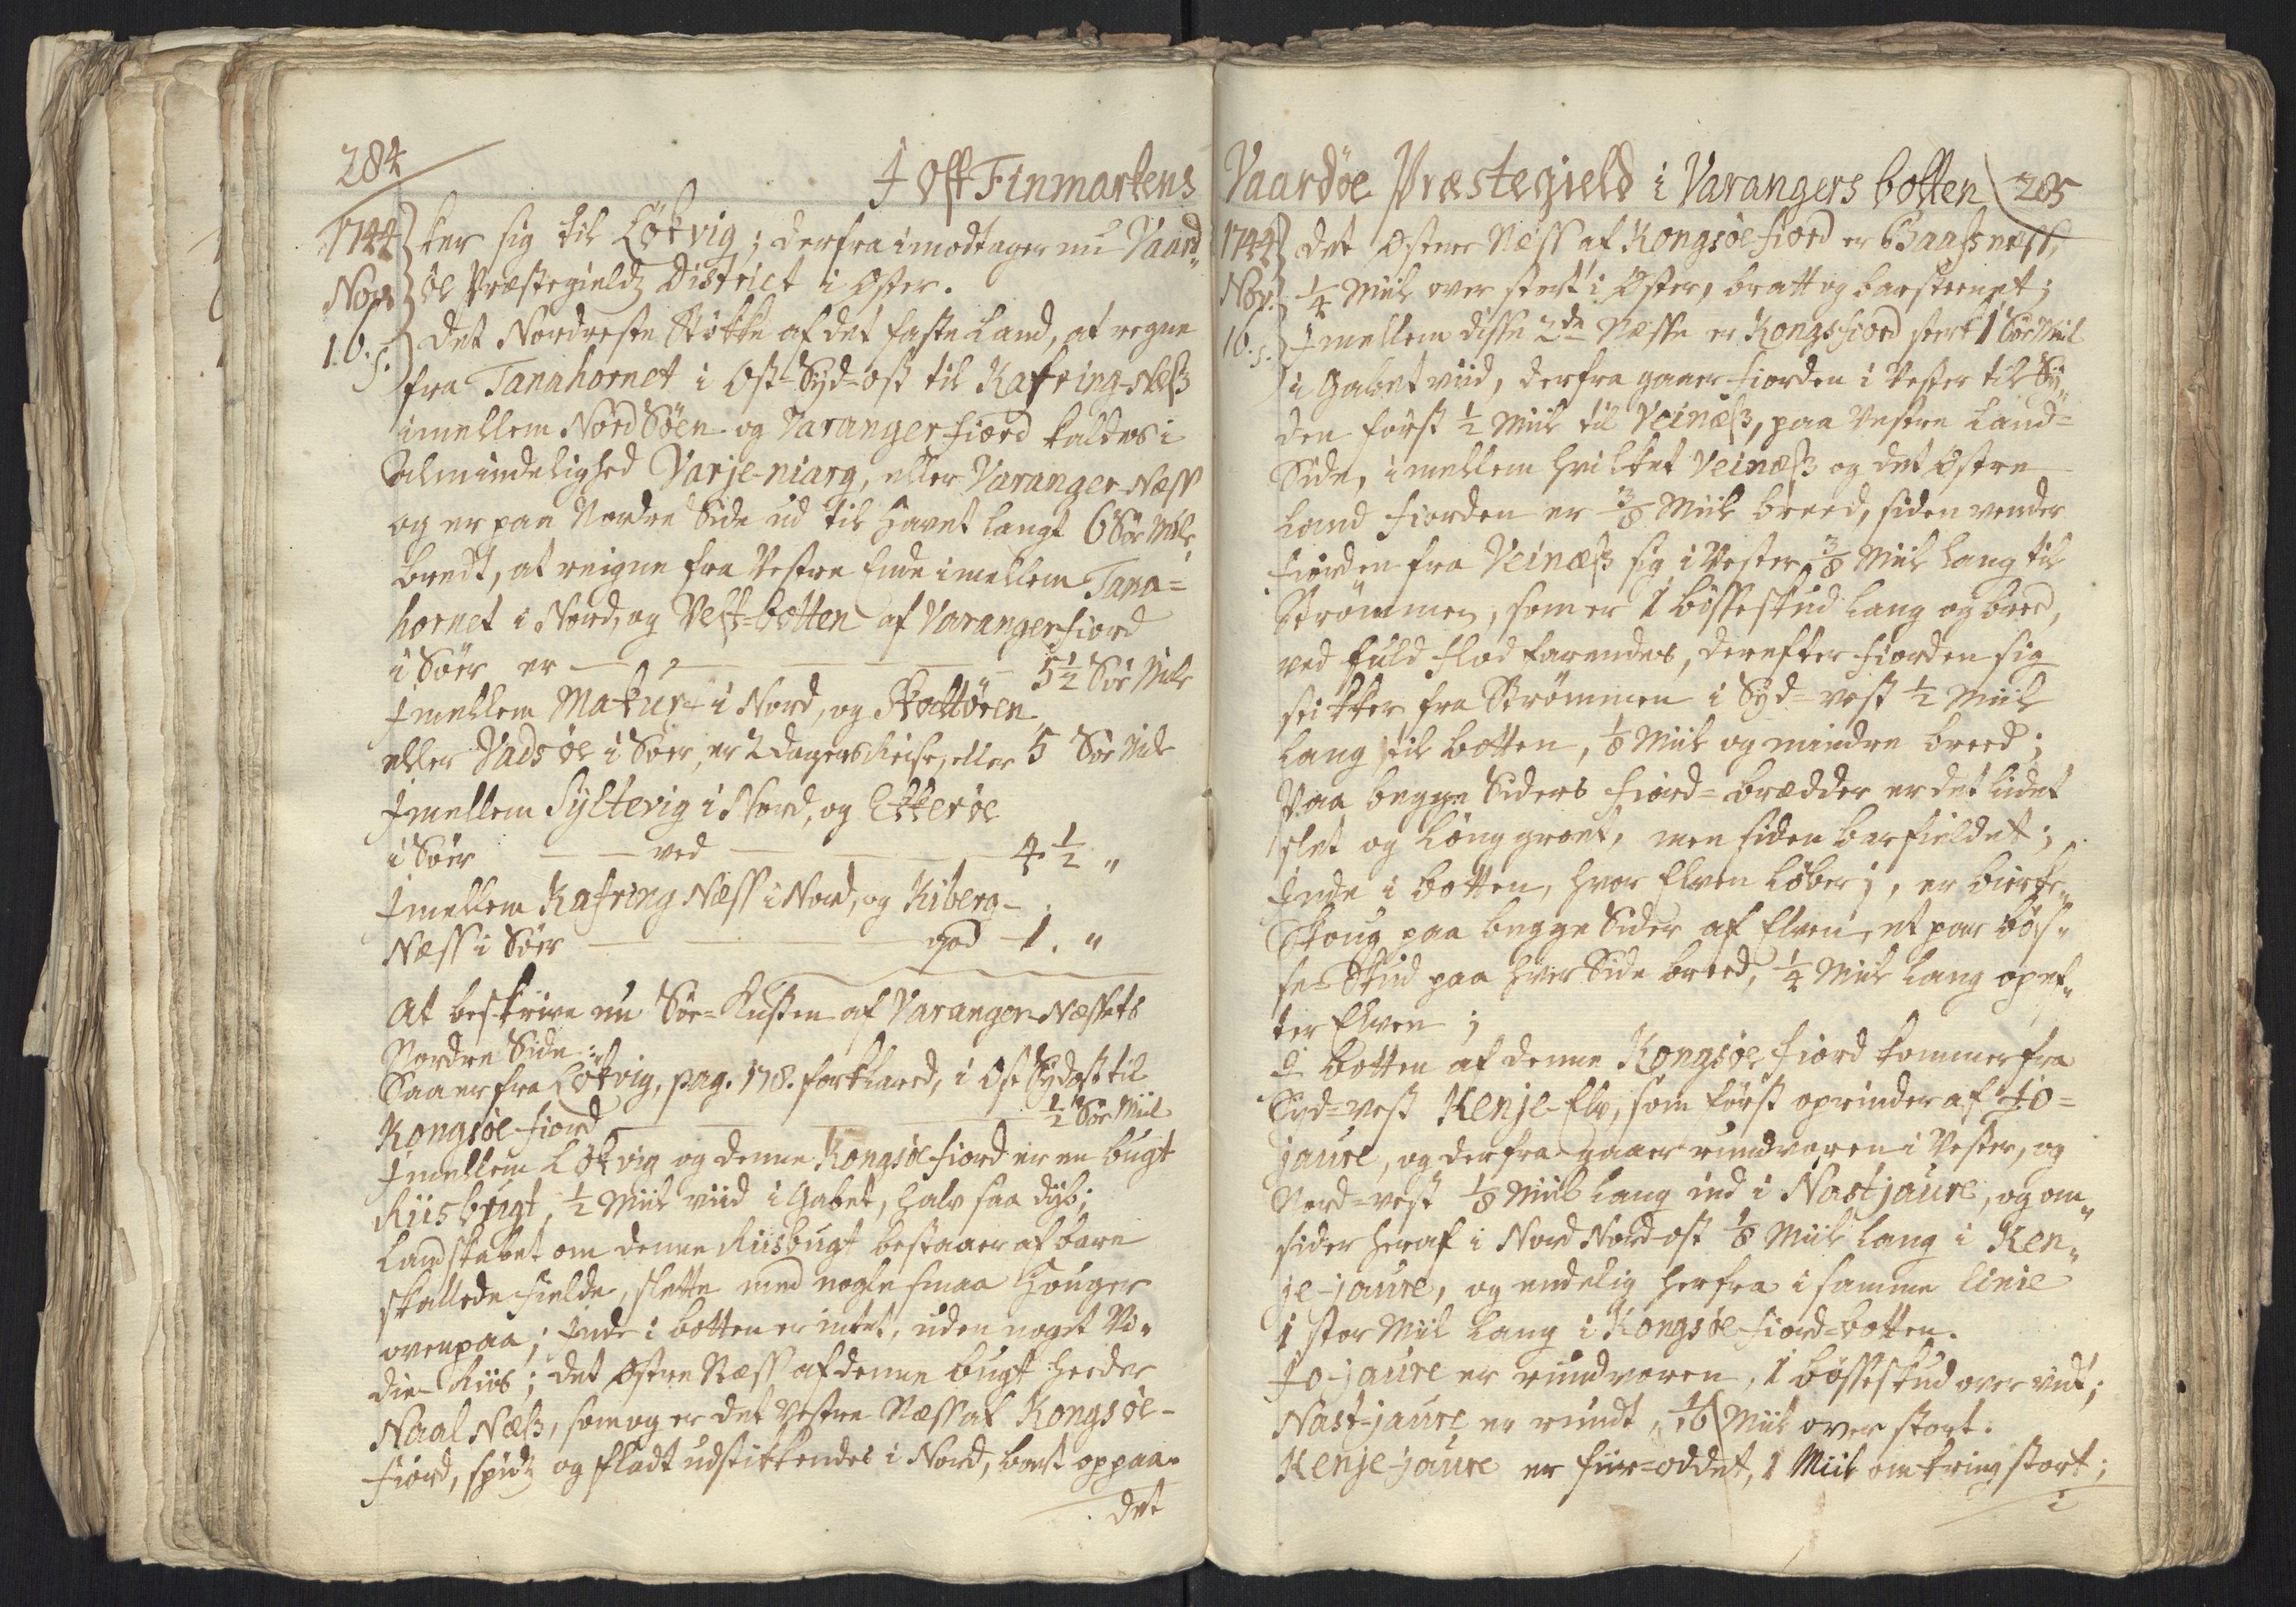 284
I Ost-Finmarkens
1744
Nov.
16. s.
ker sig til Løkvig; derfra imodtager nu Vaard„
øe Præstegields District i Øster.
Det Nordreste Støkke af det faste Land, at regne
fra Tanahornet i Ost-Syd-ost til Kafring-Næss
imellem NordSöen og Varangerfiord kaldes i
Almindelighed Varje-niarg, eller Varanger-Næss
og er paa Nordre Side ud til Havet langt 6 Søe Mile,
bredt, at reigne fra Vestre Ende imellem Tana=
hornet i Nord, og Vest-botten af Varangerfiord
i Söer er — — — 5½ Söe Mile
Imellem Makur i Nord, og Skattøren
eller Vadsøe i Söer, er 2 dagers Reise, eller 5 Söe Mile
Imellem Syltevig i Nord, og Ekkerøe
i Söer — — ved — — 4½ „
Imellem Kafring Næss i Nord, og Kiberg-
Næss i Söer — — — god — 1. „
At beskrive nu Söe-Kusten af Varanger-Næssets
Nordre Side:
Saa er fra Løkvig, pag. 178. forklared, i Ost Sydost til
Kongsöefiord — — — ½ Söe Miil
Imellem Løkvig og denne Kongsöefiord er en bugt
Riisbugt, ½ Miil viid i Gabet, halv saa dyb;
Landskabet om denne Riisbugt bestaaer af bare
skallede Fielde, slette med nogle smaa Houger
ovenpaa; Inde i botten er intet, uden noget Vi„
die-Riis; det Østre Næss af denne bugt heeder
Naal Næss, som og er det Vestre Næss af Kongsöe-
fiord, spids og fladt udstikkendes i Nord, bart oppaa.
Det
Vaardøe Præstegield i Varangers botten
285
1744
Nov.
16. s.
Det Østere Næss af Kongsöefiord er Baassness,
¼ Miil over stort i Øster, bratt og barsteenet;
Imellem disse 2de Næsse er Kongsfiord stert 1 Söe Miil
i Gabet viid, derfra gaaer fiorden i Vester til Sy„
den först ½ Miil til Veinæss, paa Vestre Land=
Side, imellem hvilket Veinæss og det Østre
Land fiorden er ⅜ Miil breed, siden vender
fiorden fra Veinæss sig i Vester ⅜ Miil lang til
Strömmen, som er 1 bösseskud lang og breed,
ved fuld Flod farendes, derefter fiorden sig
stikker fra Strömmen i Syd-vest ½ Miil
lang til botten, ⅛ Miil og mindre breed;
Paa begge Siders fiord-brædder er det lidet
slet og Löng groet, men siden barfieldet;
Inde i botten, hvor Elven löber i, er birke„
Skoug paa begge Sider af Elven, et par bös„
se-Skud paa hver Side breed, ¼ Miil lang opef„
ter Elven;
I botten af denne Kongsöefiord kommer fra
Syd-vest Kenje-Elv, som först oprinder af Jo=
jaure, og derfra gaaer rundvoren i Vester, og
Nord-vest ⅛ Miil lang ind i Nastjaure, og om„
sider heraf i Nord Nord-ost ⅛ Miil lang i Ken„
je-jaure, og endelig herfra i samme linie
1 stor Miil lang i Kongsöefiord-botten.
Jo-jaure er rundvoren, 1 bösseskud over vidt;
Nast-jaure er rundt, 1/16 Miil over stort.
Kenje-jaure er fiir-oddet, 1 Miil omkring stort;
i